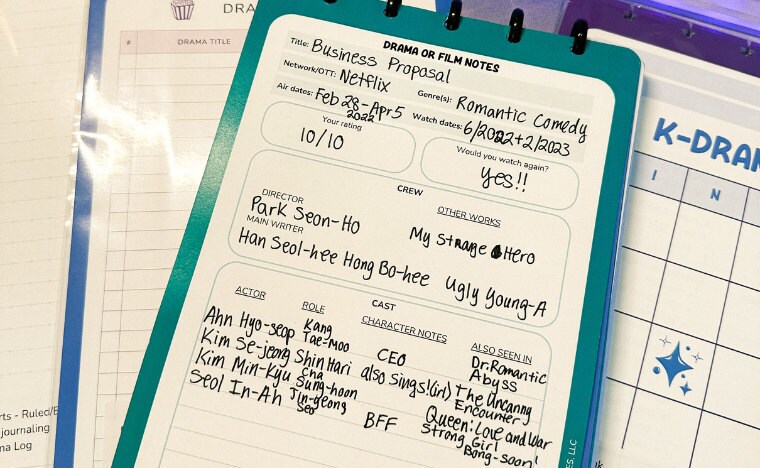 DRA
#
DRAMA TITLE
DRAMA OR FILM NOTES
Title: Business Proposal
Network/OTT: Netflix
Genre(s): Romantic Comedy
Air dates: Feb 28-Apr 5 2022
Watch dates: 6/2022+2/2023
Your rating
10/10
Would you watch again?
yes!!
CREW
DIRECTOR
Park Seon-Ho
OTHER WORKS
My strange Hero
MAIN WRITER
Han Seol-hee Hong Bo-hee Ugly Young-A
CAST
ACTOR ROLE CHARACTER NOTES ALSO SEEN IN
Ahn Hyo-seop Kang Tae-moo CEO Dr. Romantic Abyss
Kim Se-jeong Shin Hari also Sings!(Girl) The Uncanny Encounter
Kim Min-Kyu Cha Sung-hoon Queen: Love and War
Seol In-Ah Jin-yeong Seo BFF Strong Girl Bong-soon!
K-DRA
I N
rts - Ruled/
journaling
ma Log
ES, LLC